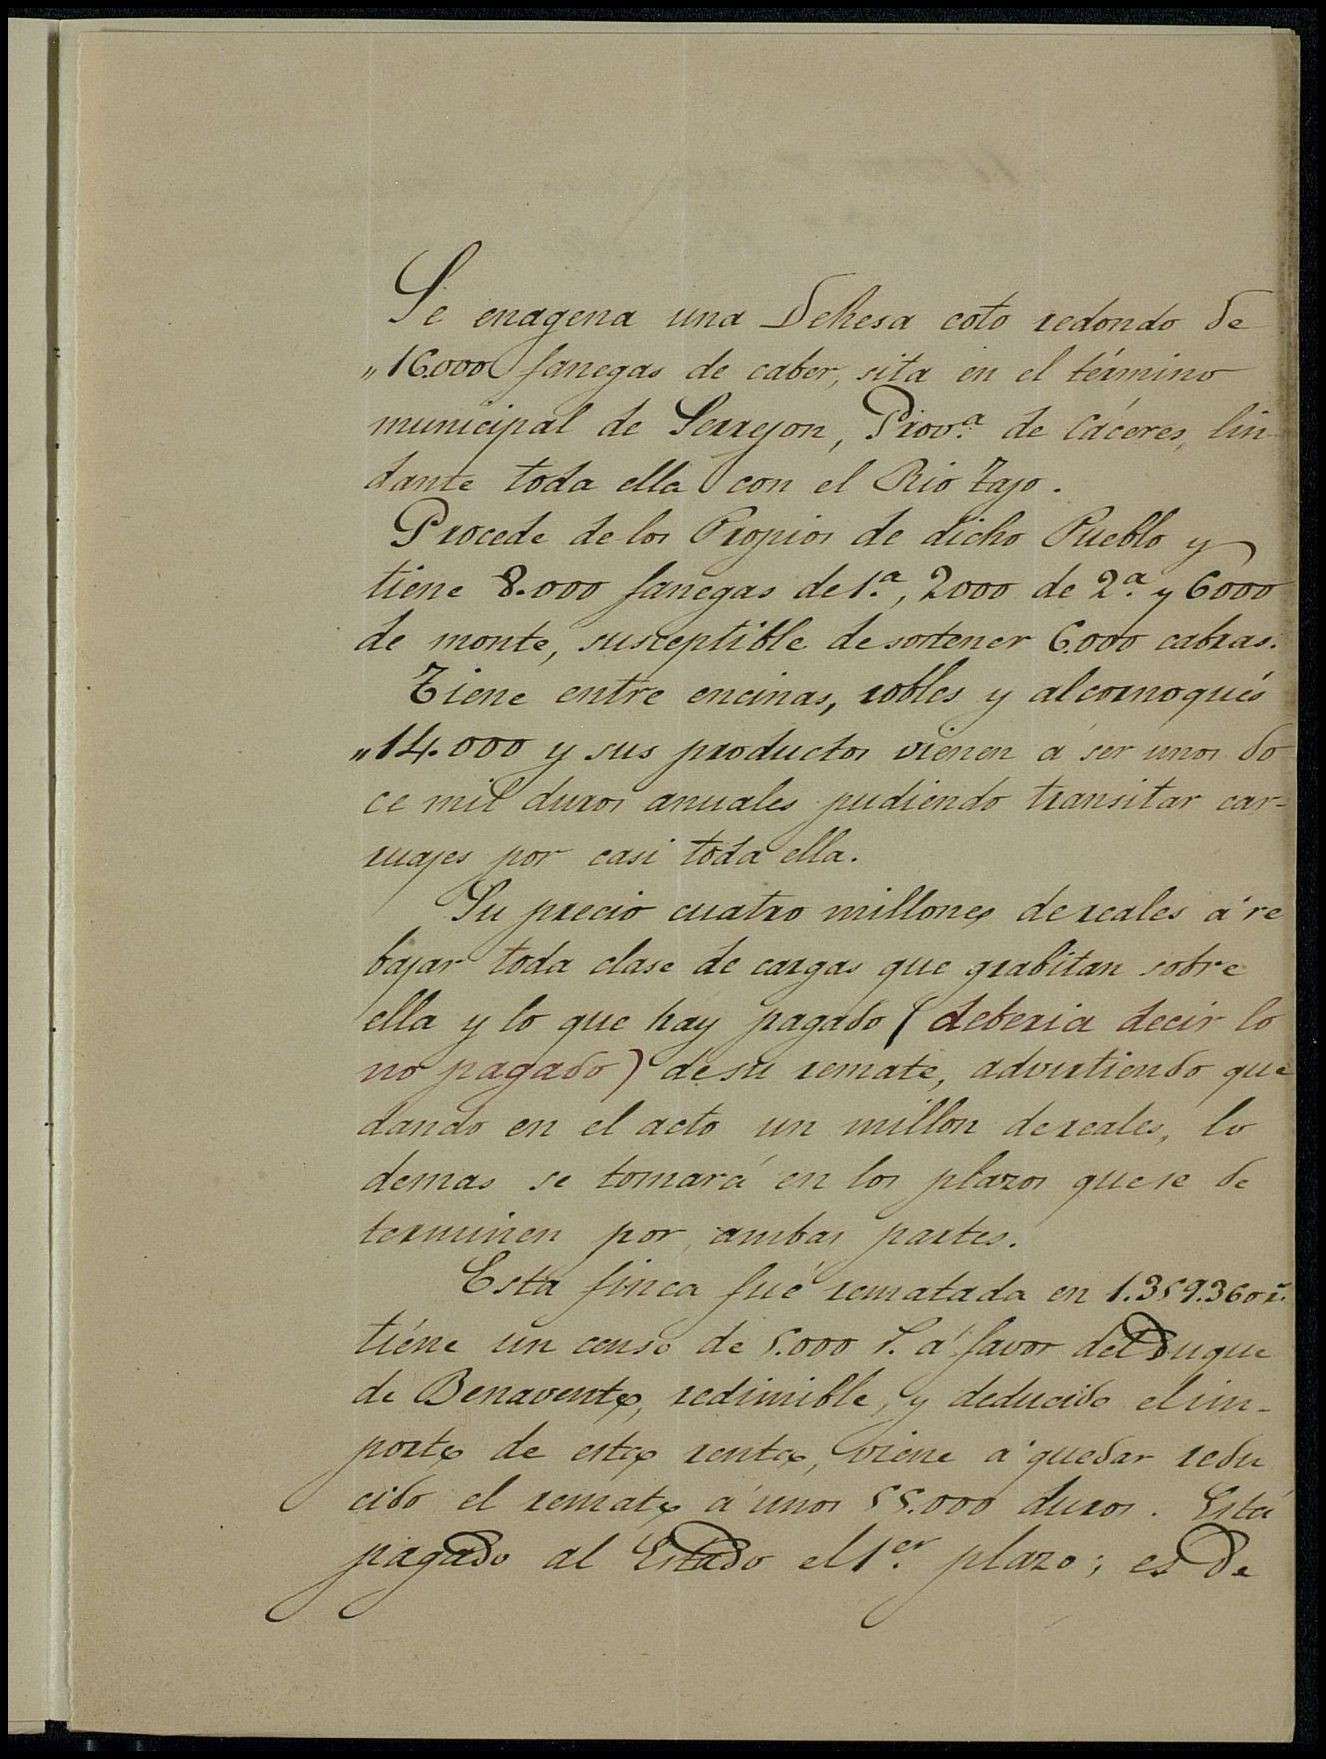 Se enagena una Dehesa coto redondo de
„16.000 fanegas de caber, sita en el término
municipal de Serrejon, Prov.ª de Cáceres, lin-
dante toda ella con el Rio Tajo.
Procede de los Propios de dicho Pueblo y
tiene 8.000 fanegas de 1.ª, 2000 de 2.ª y 6000
de monte, susceptible de sostener 6.000 cabras.
Tiene entre encinas, robles y alcornoqués
„14.000 y sus productos vienen á ser unos do
ce mil duros anuales pudiendo transitar car-
ruajes por casi toda ella.
Su precio cuatro millones de reales á re
bajar toda clase de cargas que grabitan sobre
ella y lo que hay pagado (deberia decir lo
no pagado) de su remate, advirtiendo que
dando en el acto un millon de reales, lo
demas se tomará en los plazos que se de
terminen por ambas partes.
Esta finca fué rematada en 1.359.360 r.
tiene un censo de 5.000 r. á favor del Duque
de Benavente, redimible, y deducido el im-
porte de esta renta, viene á quedar redu
cido el remate á unos 55.000 duros. Está
pagado al Estado el 1.er plazo; es de